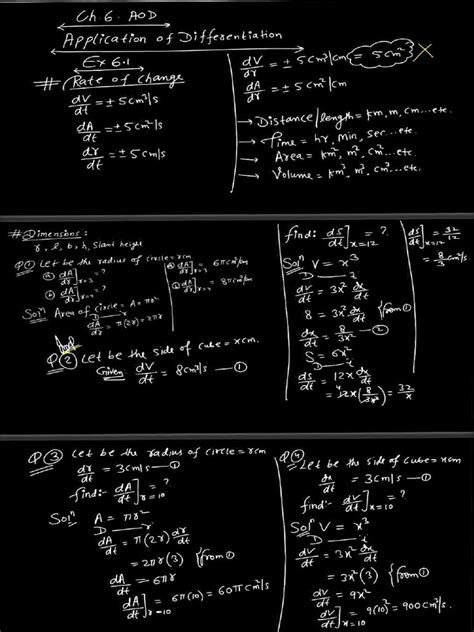 Ch. 6. AOD
Application of Differentiation
Ex 6.1
# Rate of Change
dV/dt = ± 5 cm³/s
dA/dt = ± 5 cm²/s
dr/dt = ± 5 cm/s
dV/dr = ± 5 cm³/cm = 5 cm² ×
dA/dr = ± 5 cm²/cm
→ Distance/length = km, m, cm...etc.
→ Time = hr, min, sec...etc.
→ Area = km², m², cm²...etc.
→ Volume = km³, m³, cm³...etc.
# Dimensions:
r, l, b, h, Slant height
Q① Let be the radius of circle = r cm
ⓐ dA/dr]r=3 = ?
ⓑ dA/dr]r=4 = ?
ⓐ dA/dr]r=3 = 6π cm²/cm
ⓑ dA/dr]r=4 = 8π cm²/cm
Solⁿ Area of circle = A = πr²
D
dA/dr = π(2r) = 2πr
Q② Let be the side of cube = x cm.
Given: dV/dt = 8 cm³/s —①
find: dS/dt]x=12 = ?
Solⁿ V = x³
D
dV/dt = 3x² dx/dt
8 = 3x² dx/dt {from ①
dx/dt = 8/3x² —②
S = 6x²
D
dS/dt = 12x dx/dt
= 12x (8/3x²) = 32/x
dS/dt]x=12 = 32/12
= 8/3 cm²/s
Q③ Let be the radius of circle = r cm
dr/dt = 3 cm/s —①
find:- dA/dt]r=10 = ?
Solⁿ A = πr²
D
dA/dt = π(2r) dr/dt
= 2πr(3) {from ①
dA/dt = 6πr
dA/dt]r=10 = 6π(10) = 60π cm²/s
Q④ Let be the side of cube = x cm
dx/dt = 3 cm/s —①
find:- dV/dt]x=10 = ?
Solⁿ V = x³
D
dV/dt = 3x² dx/dt
= 3x²(3) {from ①
dV/dt = 9x²
dV/dt]x=10 = 9(10)² = 900 cm³/s